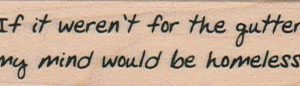 If it weren't for the gutter
my mind would be homeless